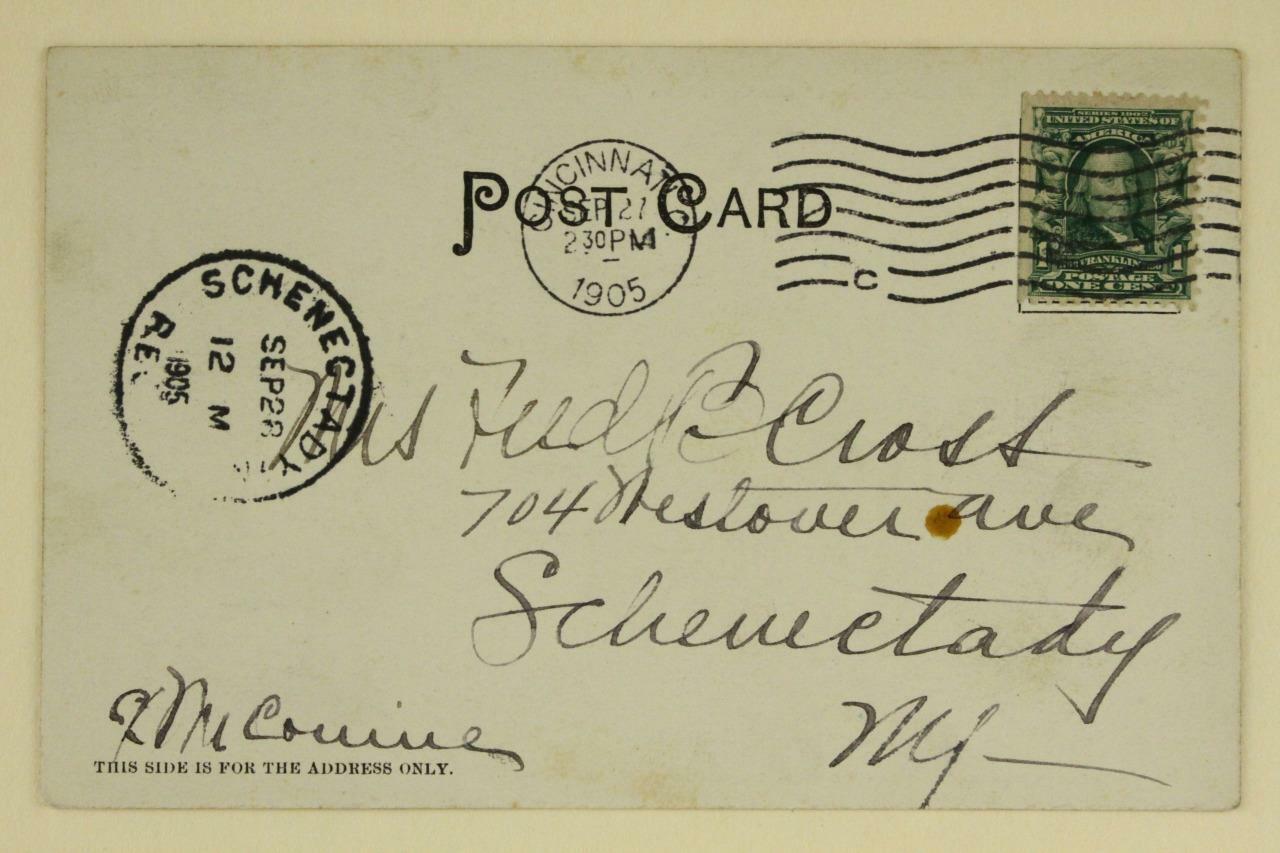 POST CARD
CINCINNATI, O
SEP 27
2 30 PM
1905
C
SERIES 1902
UNITED STATES OF
AMERICA
1 FRANKLIN 1
POSTAGE
ONE CENT
SCHENECTADY
SEP 28
12 M
1905
REC
Mrs Fred P Cross
704 Westover ave
Schenectady
NY
McComine
THIS SIDE IS FOR THE ADDRESS ONLY.